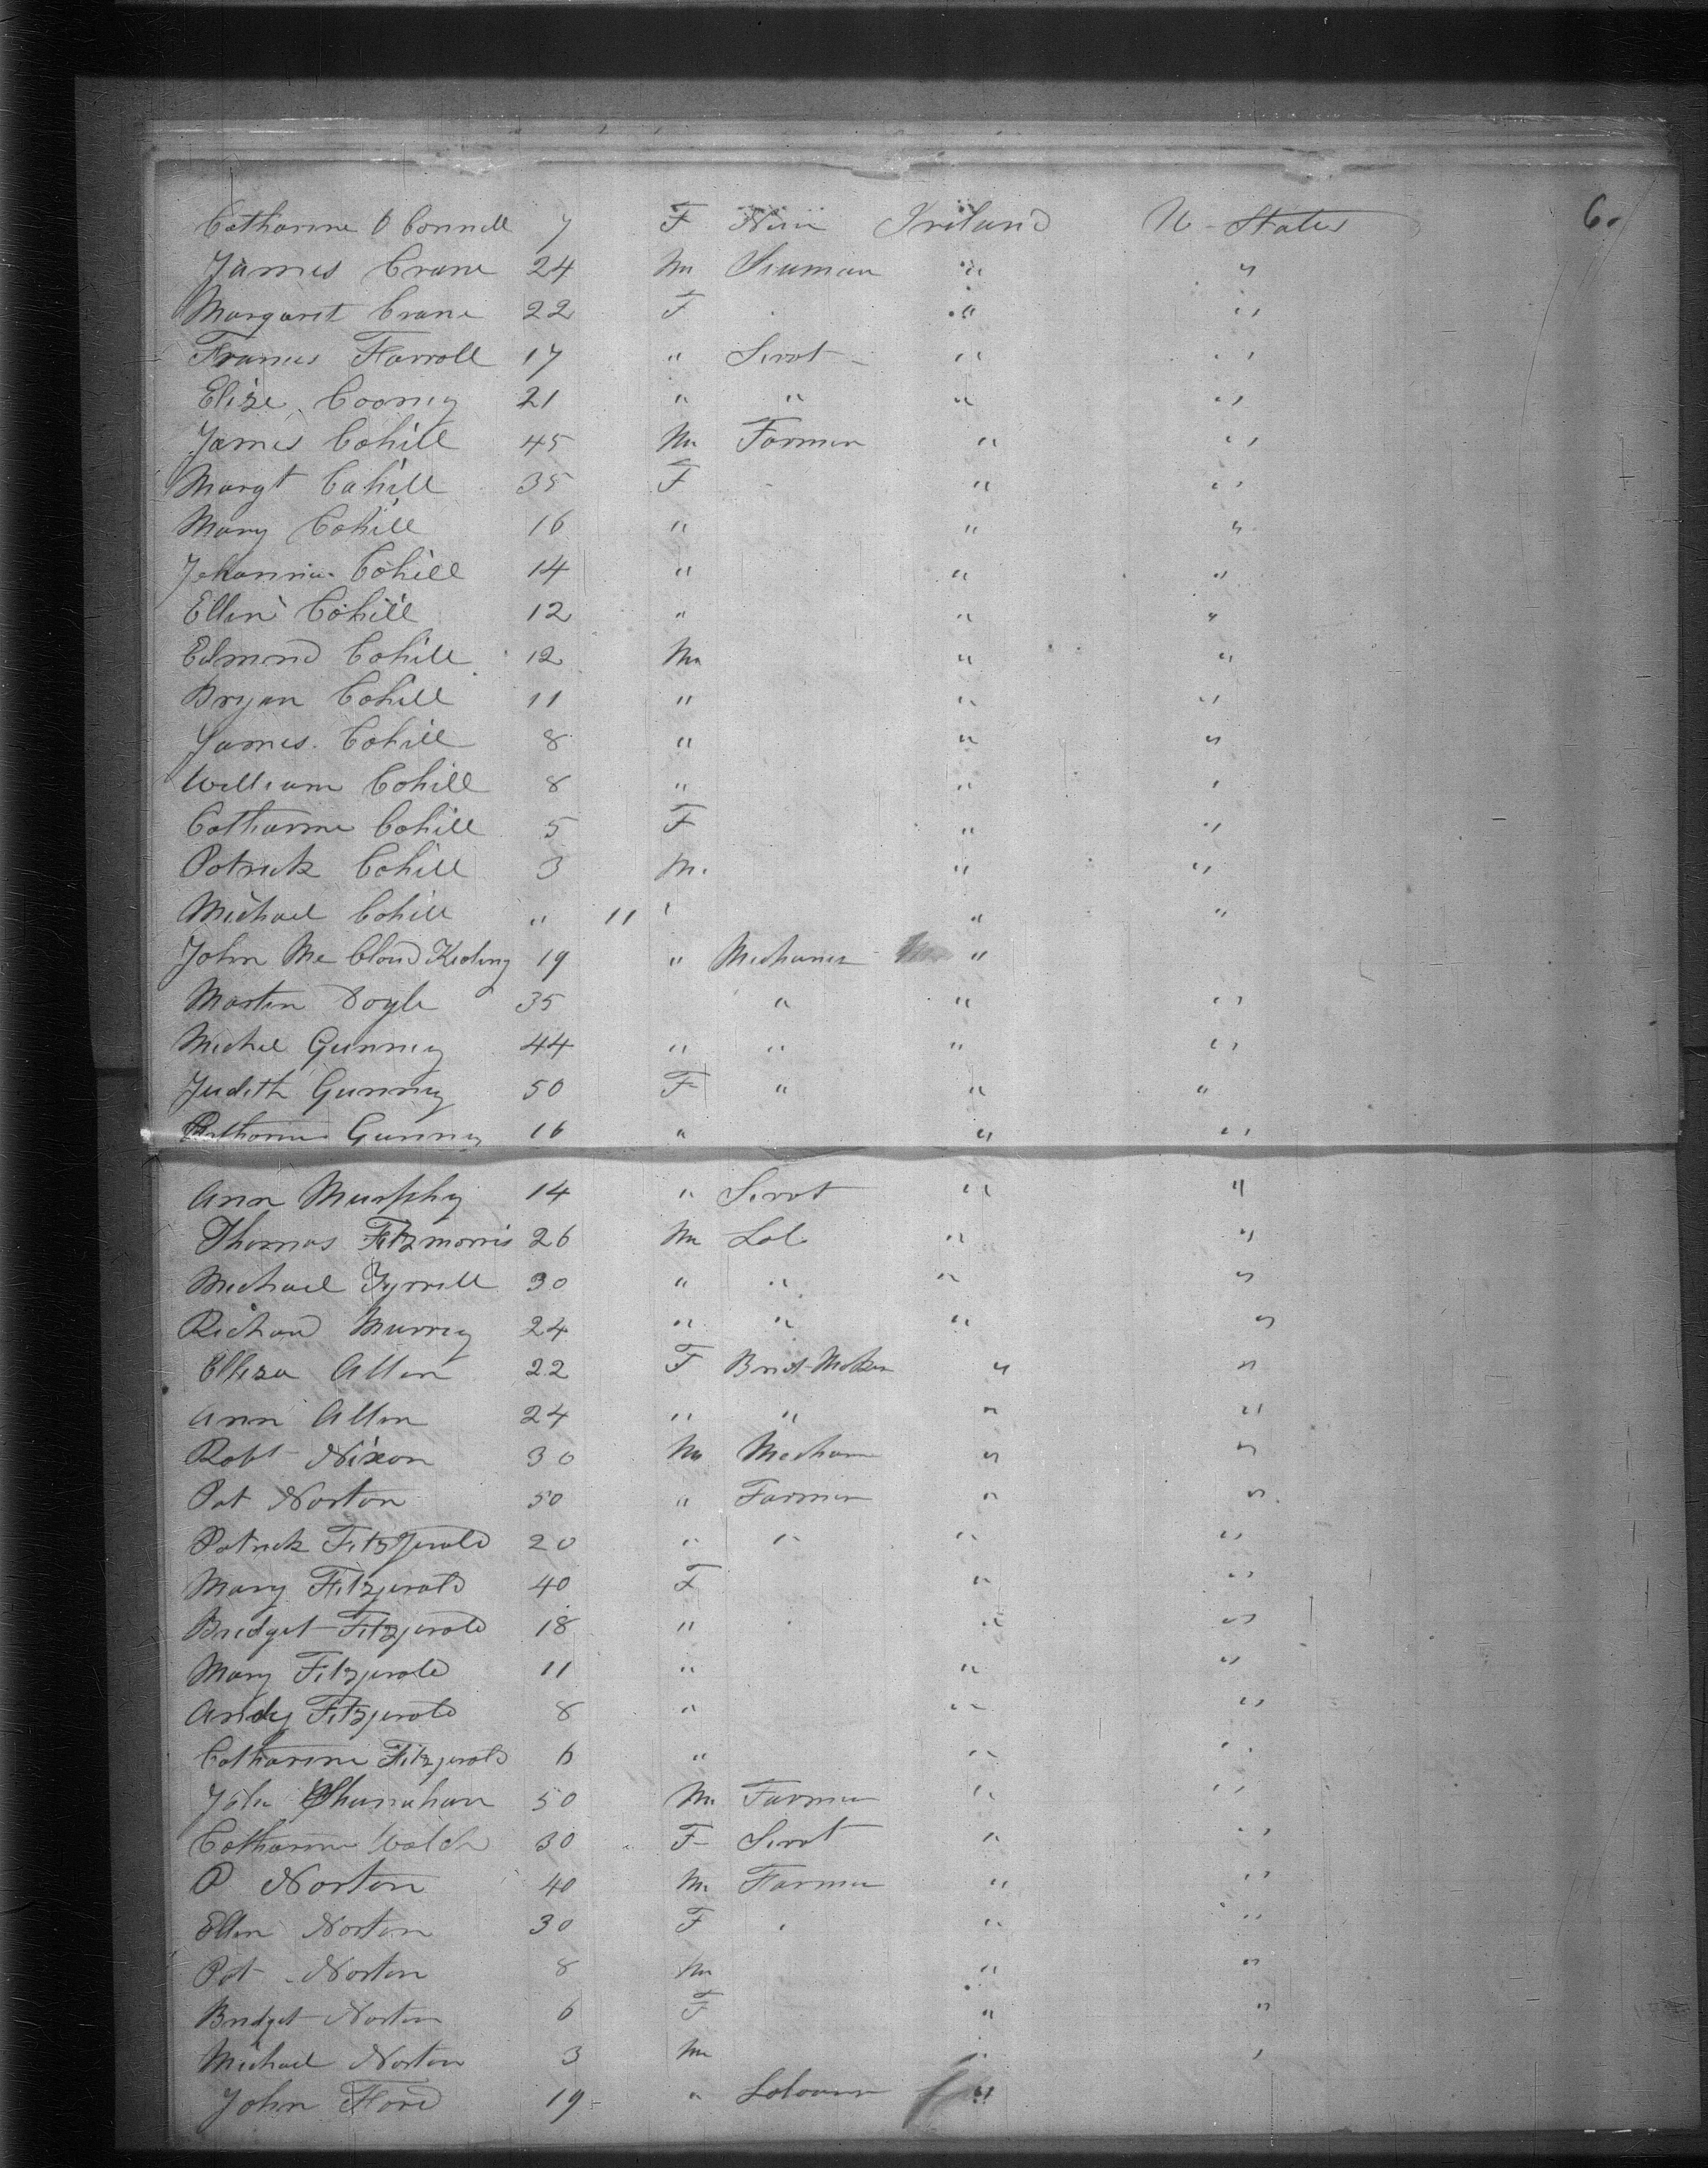 6.
Catharine O Connell 7 F None Ireland U-States
James Crane 24 M Seaman " "
Margaret Crane 22 F " "
Frances Farroll 17 " Servt " "
Elize Cooney 21 " " " "
James Cahill 45 M Farmer " "
Margt Cahill 35 F " "
Mary Cahill 16 " " "
Johanna Cahill 14 " " "
Ellen Cahill 12 " " "
Edmond Cahill 12 M " "
Bryan Cahill 11 " " "
James Cahill 8 " " "
William Cahill 8 " " "
Catharine Cahill 5 F " "
Patrick Cahill 3 M. " "
Michael Cahill " 11 " " "
John Mc Cloud 19 " Mechanic "
Martin Doyle 35 " " "
Michel Gunney 44 " " " "
Judith Gunney 50 F " " "
Catharine Gunney 16 " " "
Ann Murphy 14 " Servt " "
Thomas Fitzmorris 26 M Lab " "
Michael Tyrrell 30 " " " "
Richard Murrey 24 " " " "
Elliza Allen 22 F " "
Ann Allen 24 " " " "
Robt Nixon 30 M Mechanic " "
Pat Norton 50 " Farmer " "
Patrick Fitzgerald 20 " " " "
Mary Fitzgerald 40 F " "
Bridget Fitzgerald 18 " " "
Mary Fitzgerald 11 " " "
Andy Fitzgerald 8 " " "
Catharine Fitzgerald 6 " " "
John Shanahan 50 M. Farmer " "
Catharine Walch 30 F Servt " "
P Norton 40 M. Farmer " "
Ellen Norton 30 F " "
Pat Norton 8 M " "
Bridget Norton 6 F " "
Michael Norton 3 M " "
John Ford 19 " Labourer "